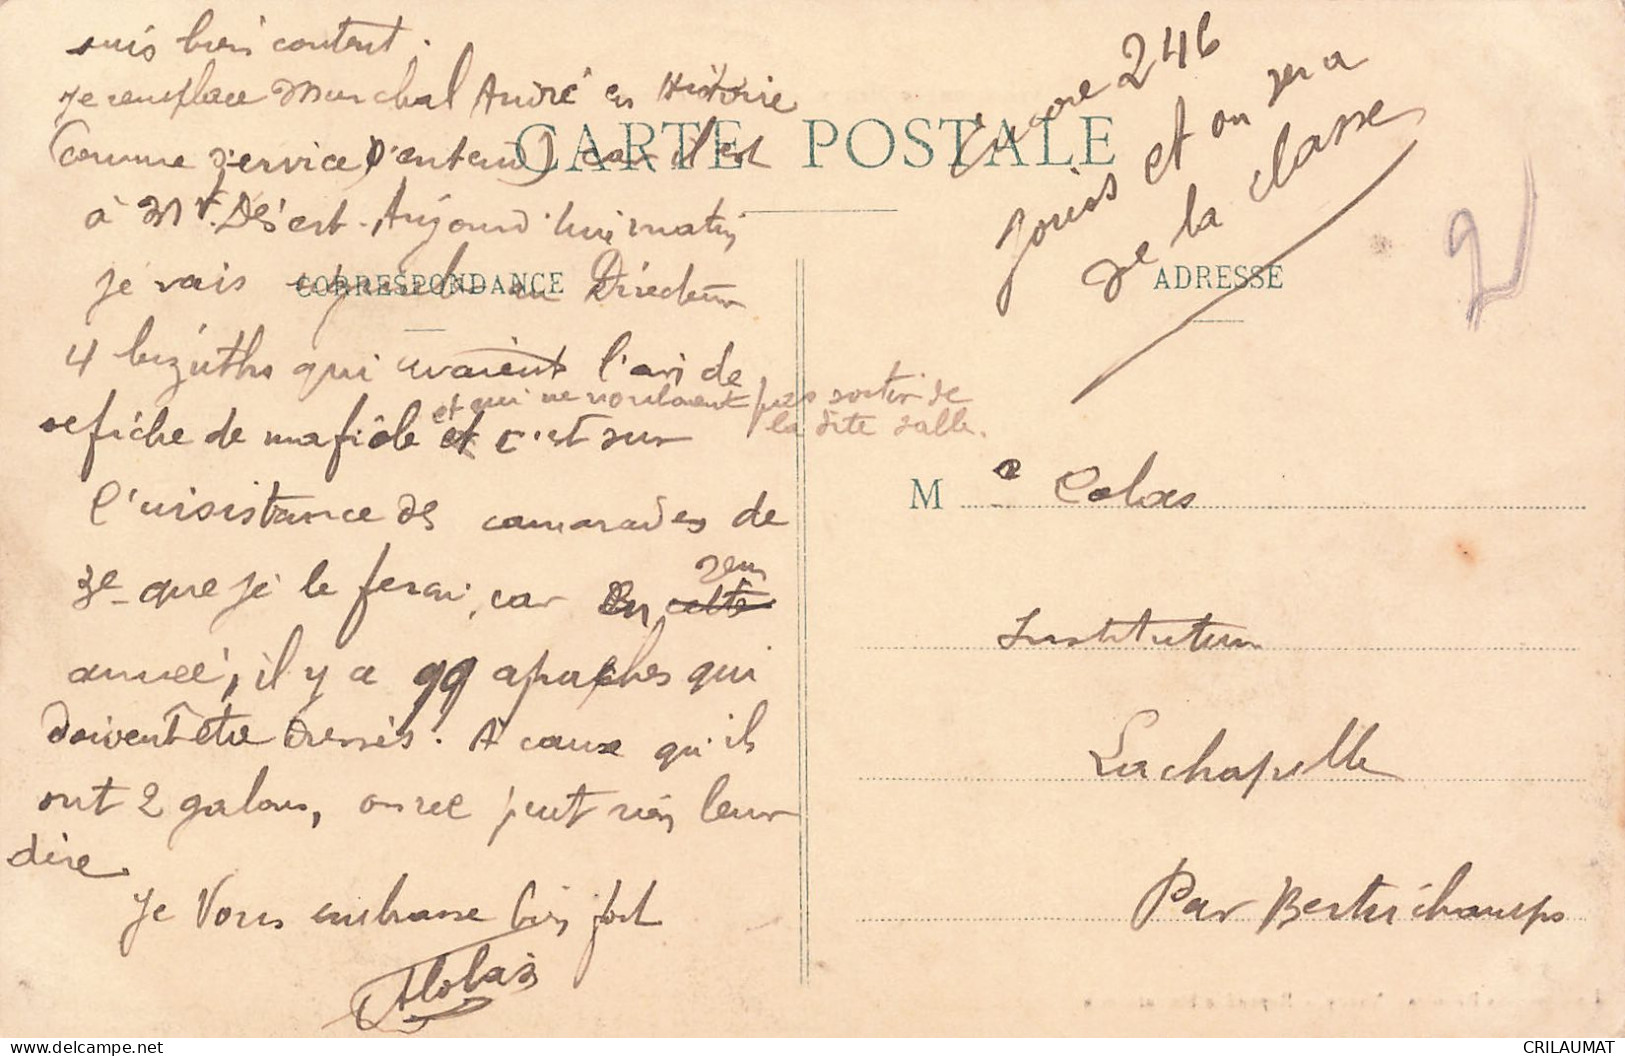 suis bien content.
Je remplace Marchal André en Histoire
(comme service d'entend) car il est
à Mr. Dés'ert. Aujourd'hui matin
je vais au Directeur
4 bizuths qui avaient l'air de
se fiche de ma fiôle et c'est sur
et qui ne voulaient pas sortir de
la dite salle.
l'insistance des camarades de
3e que je le ferai, car en cette 2em
année, il y a 99 apaches qui
doivent être dressés. A cause qu'ils
ont 2 galons, on ne peut rien leur
dire.
Je Vous embrasse bien fort
AColas
CARTE POSTALE
CORRESPONDANCE
ADRESSE
Encore 246
Jours et on sera
de la classe
2
M e Colas
Instituteur
Lachapelle
Par Bertrichamps
CRILAUMAT